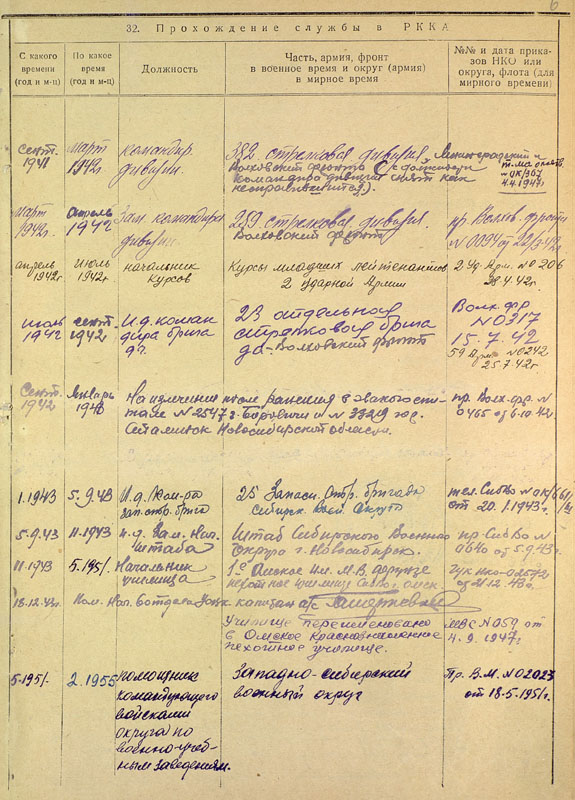 6
32. Прохождение службы в РККА
С какого времени (год и м-ц)
По какое время (год и м-ц)
Должность
Часть, армия, фронт в военное время и округ (армия) в мирное время
№№ и дата приказов НКО или округа, флота (для мирного времени)
сент. 1941
март 1942г
командир дивизии
382 стрелковая дивизия, Ленинградский и
Волховский фронты (с должности
командира дивизии снят как
№ ОК/307
4.4.1947г.
март 1942г.
апрель 1942
Зам командира дивизии
259 стрелковая дивизия.
Волховский фронт
пр. Волхов. фронта
№ 0094 от 22/3-42г.
апрель 1942г.
июль 1942г.
начальник курсов
Курсы младших лейтенантов
2 Ударной Армии
2 Уд. Арм. № 206
28.4.42г.
июль 1942
сент. 1942г
И.д. командира бригады
23 отдельная
стрелковая бригада - Волховский фронт
Волх. фр.
№ 0317
15.7.42
59 Арм. № 0242
25.7.42г.
Сент. 1942
Январь 1943
На излечении после ранения в эвакогоспитале № 2547 г. Боровичи и № 3329 гор.
Сталинск Новосибирской области.
пр. Волх. фр. №
0465 от 6.10.42
1.1943
5.9.43
И.д. Ком-ра
зап. стр. бриг.
25 Запасн. Стр. бригада
Сибирск. воен. округа
тел. СибВО № ОК/661
от 20.1.1943г.
5.9.43
11.1943
и.д. Зам. Нач.
штаба
Штаб Сибирского Военного
округа г. Новосибирск.
пр. СибВо №
0640 от 5.9.43г.
11.1943
5.195/.
Начальник
училища
1-е Омское им. М.В. Фрунзе
пехотное училище СибВО г. Омск.
ГУК НКО № 02572
от 21.12.43г.
18.12.43г.
Пом. Нач. 6 отдела УОК капитан а/с
Училище переименовано
в Омское Краснознаменное
пехотное училище.
МВС № 059 от
4.9.1947г.
5-195/.
2.1955
помощник
командующего
войсками
округа по
военно-учебным заведениям.
Западно-сибирский
военный округ
Пр. В.М. № 02023
от 18-5-195/г.